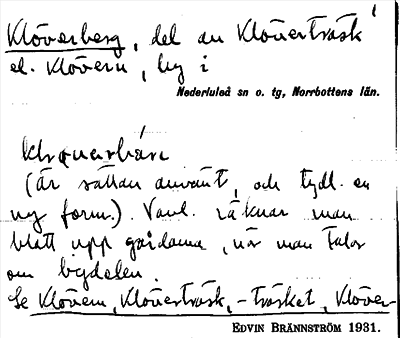 Klöverberg, del av Klöverträsk
el. Klövern, by i
Nederluleå sn o. tg, Norrbottens län.
(är sällan använt, och tydl. en
ny form.). Vanl. räknar man
blått upp gårdarna, när man talar
om bydelen.
Se Klövern, Klöverträsk, -träsket, Klöver-
EDVIN BRÄNNSTRÖM 1931.